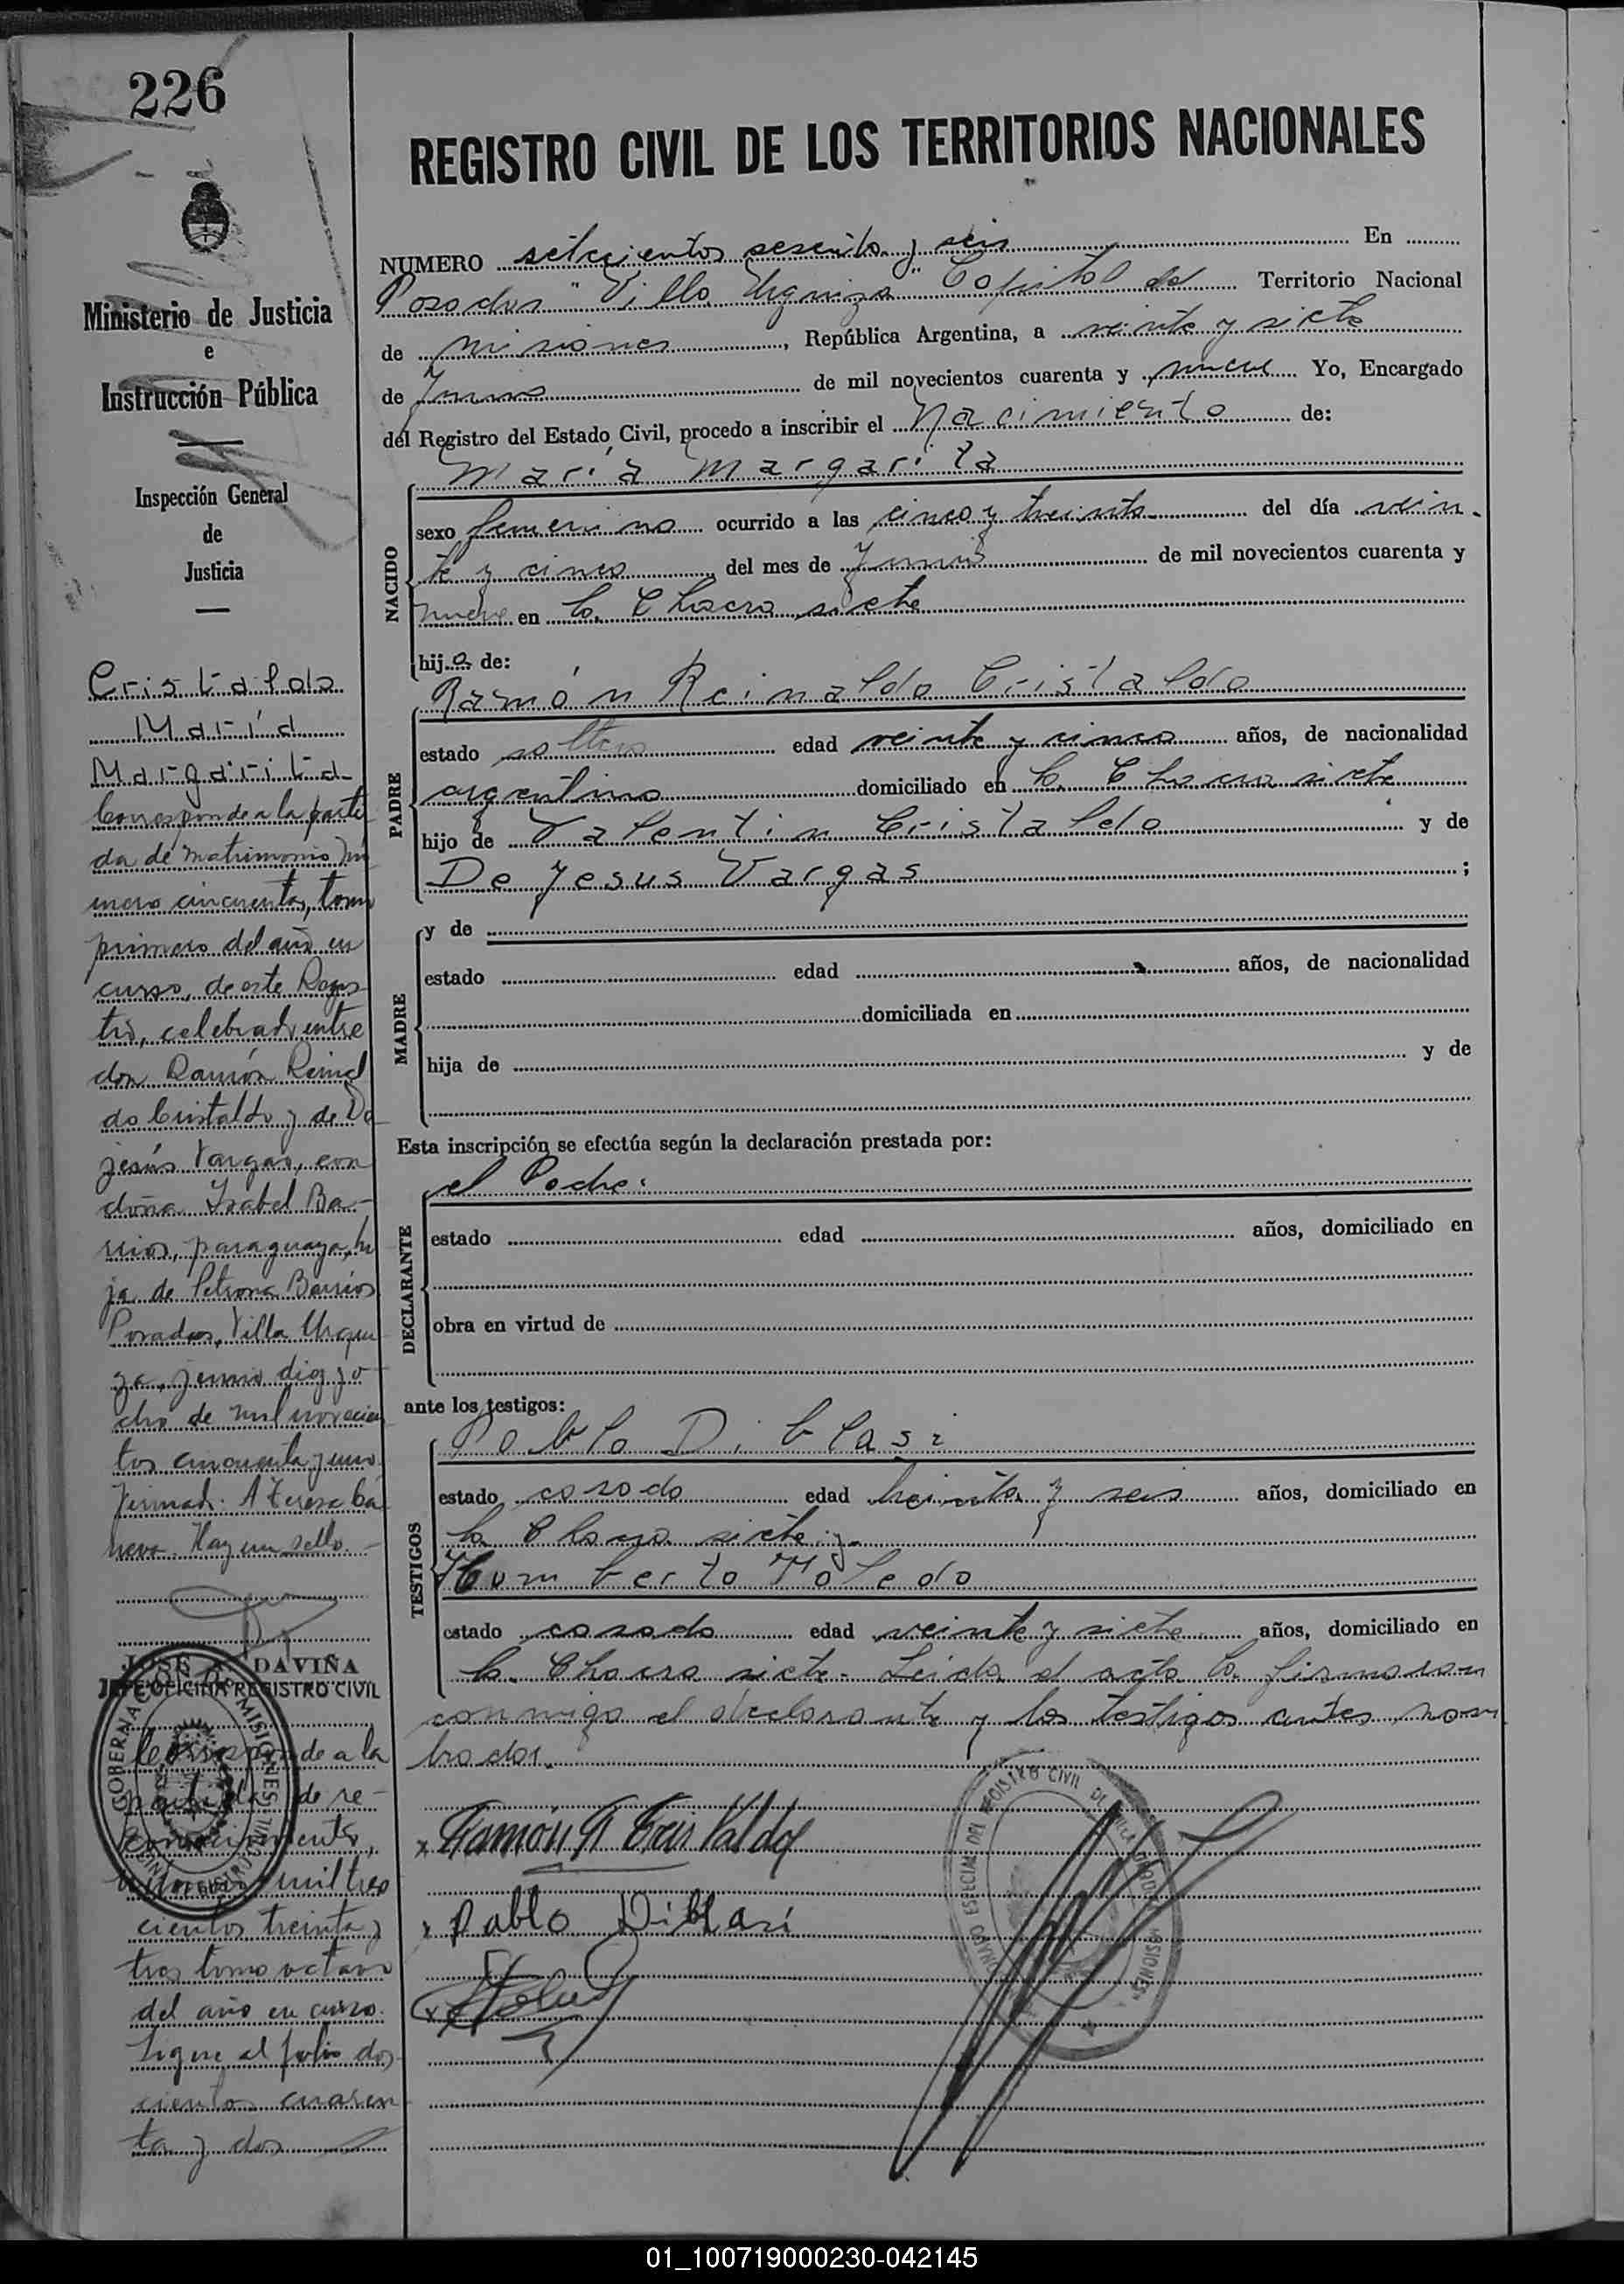 226
Ministerio de Justicia
e
Instrucción Pública
Inspección General
de
Justicia
Cristaldo
María
Margarita
Corresponde a la parti
da de matrimonio nú
mero cincuenta, tomo
primero del año en
curso, de este Regis
tro, celebrado entre
don Ramón Reinal
do Cristaldo y de De
Jesús Vargas, con
doña Isabel Ba-
rrios, paraguaya, hi
ja de Petrona Barrios
Posadas, Villa Urqui
za, junio diez y o
cho de mil novecien
tos cincuenta y uno
Firmado: A Teresa
Hay un sello.-
JOSE DAVIÑA
JEFE OFICINA REGISTRO CIVIL
GOBERNA MISIONES
Corresponde a la
partida de re-
conocimiento,
mil tres
cientos treinta y
tres tomo octavo
del año en curso.
Sigue al folio dos
cientos cuaren
ta y dos
REGISTRO CIVIL DE LOS TERRITORIOS NACIONALES
NUMERO setecientos sesenta y seis En
Posadas "Villa Urquiza" Capital del Territorio Nacional
de Misiones, República Argentina, a veinte y siete
de Junio de mil novecientos cuarenta y nueve Yo, Encargado
del Registro del Estado Civil, procedo a inscribir el Nacimiento de:
NACIDO
María Margarita
sexo femenino ocurrido a las cinco y treinta del día vein-
te y cinco del mes de Junio de mil novecientos cuarenta y
nueve en la Chacra siete
hija de:
PADRE
Ramón Reinaldo Cristaldo
estado soltero edad veinte y cinco años, de nacionalidad
argentino domiciliado en la Chacra siete
hijo de Valentin Cristaldo y de
De Jesus Vargas;
MADRE
y de
estado edad años, de nacionalidad
domiciliada en
hija de y de
Esta inscripción se efectúa según la declaración prestada por:
DECLARANTE
el Padre:
estado edad años, domiciliado en
obra en virtud de
ante los testigos:
TESTIGOS
Pablo Di Blasi
estado casado edad treinta y seis años, domiciliado en
la Chacra siete y.
Humberto Toledo
estado casado edad veinte y siete años, domiciliado en
la Chacra siete. Leida el acta la firmaron
conmigo el declarante y los testigos antes nom
brados.
REGISTRO CIVIL DE VILLA
ESPECIAL DEL
MISIONES
x Ramón R Cristaldo
x Pablo Di Blasi
01_100719000230-042145